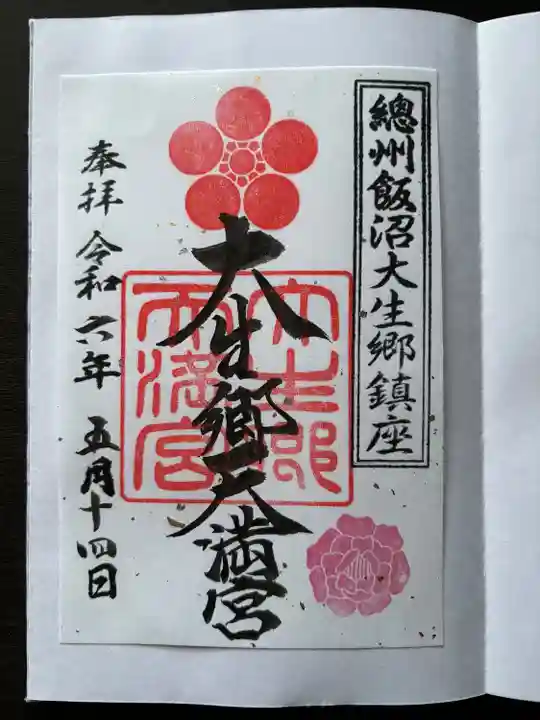 總州飯沼大生郷鎮座
大生郷天満宮
大生郷
天満宮
奉拝 令和六年 五月十四日